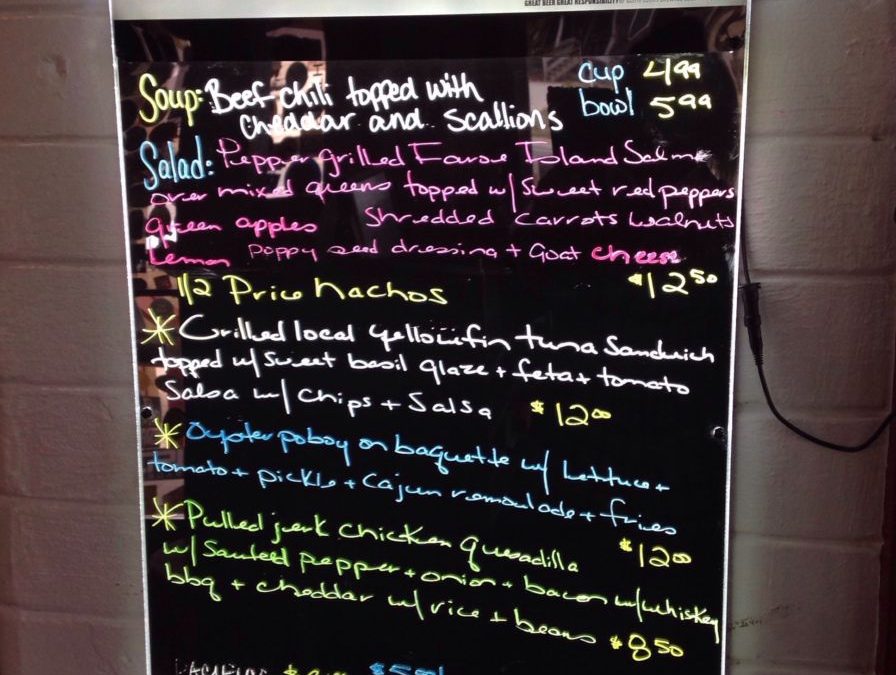 GREAT BEER GREAT RESPONSIBILITY
Soup: Beef chili topped with cup 4.99
cheddar and scallions bowl 5.99
Salad: Pepper grilled Faroe Island Salmon
over mixed greens topped w/ Sweet red peppers
green apples Shredded Carrots walnuts
Lemon poppy seed dressing + Goat cheese
$12.50
1/2 Price nachos
* Grilled local yellowfin tuna Sandwich
topped w/ Sweet basil glaze + feta + tomato
Salsa w/ chips + Salsa $12.00
* Oyster poboy on baguette w/ Lettuce +
tomato + pickle + Cajun remoulade + fries
$12.00
* Pulled jerk chicken quesadilla
w/ Sauteed pepper + onion + bacon w/ whiskey
bbq + cheddar w/ rice + beans $8.50